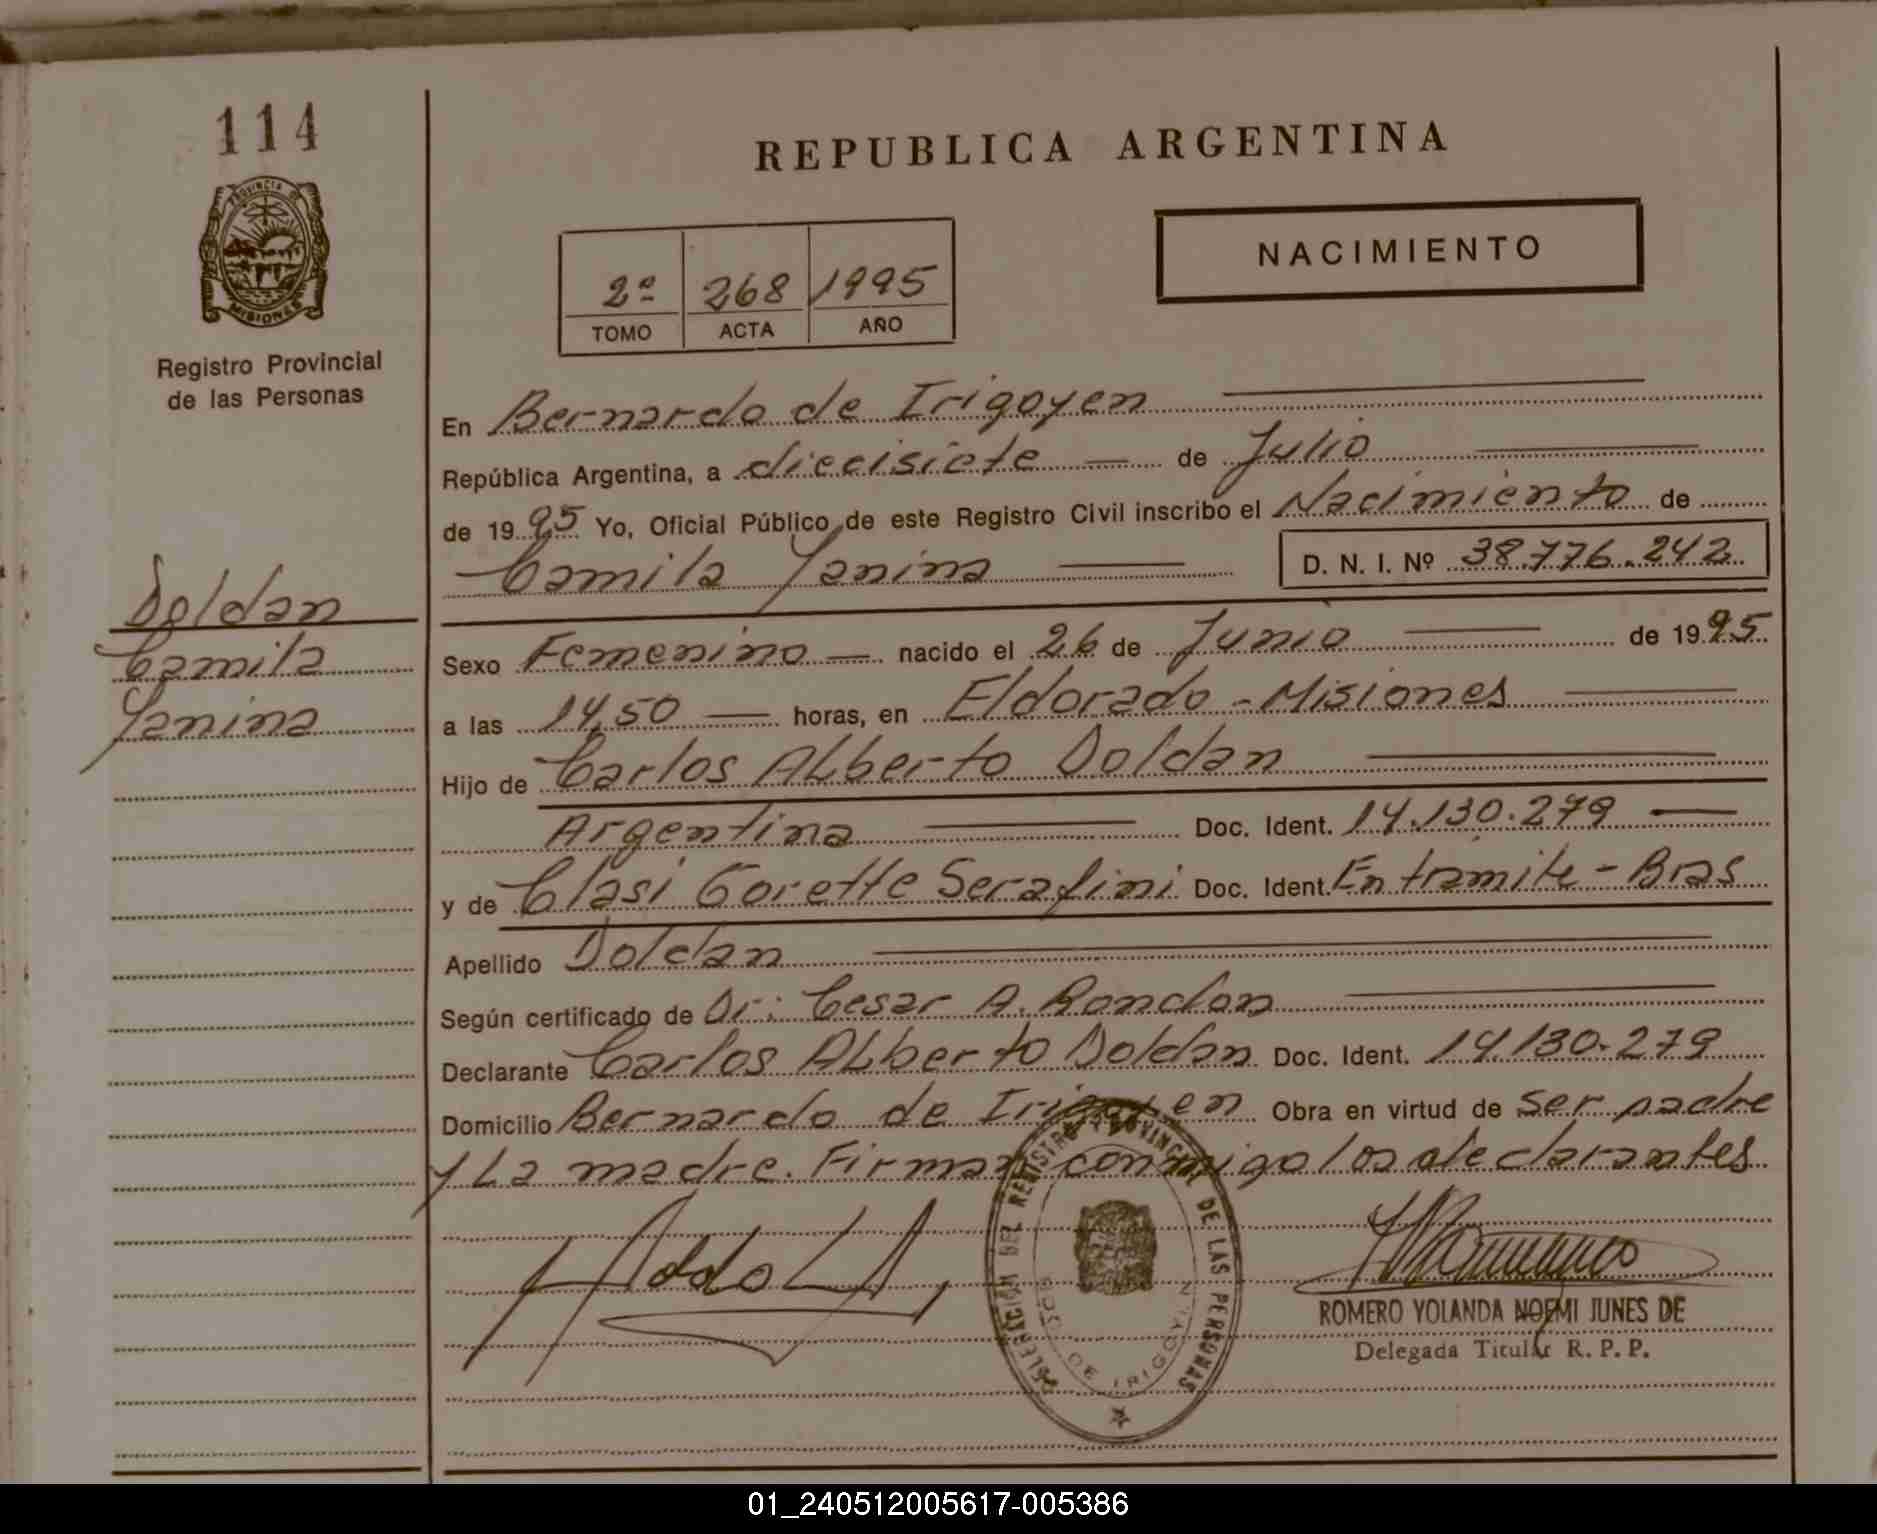 114
REPUBLICA ARGENTINA
PROVINCIA DE
MISIONES
Registro Provincial
de las Personas
2º 268 1995
TOMO ACTA AÑO
NACIMIENTO
En Bernardo de Irigoyen
República Argentina, a diecisiete de Julio
de 1995 Yo, Oficial Público de este Registro Civil inscribo el Nacimiento de
Camila Yanina D. N. I. Nº 38.776.242
Doldan
Camila
Yanina
Sexo Femenino nacido el 26 de Junio de 1995
a las 14,50 horas, en Eldorado - Misiones
Hijo de Carlos Alberto Doldan
Argentina Doc. Ident. 14.130.279
y de Clasi Gorette Serafini Doc. Ident. En trámite - Bras
Apellido Doldan
Según certificado de Dr: Cesar A. Rondon
Declarante Carlos Alberto Doldan Doc. Ident. 14.130.279
Domicilio Bernardo de Irigoyen Obra en virtud de ser padre
y La madre. Firman conmigo los declarantes
DELEGACIÓN DEL REGISTRO PROVINCIAL DE LAS PERSONAS
DE IRIGOYEN
ROMERO YOLANDA NOEMI JUNES DE
Delegada Titular R. P. P.
01_240512005617-005386